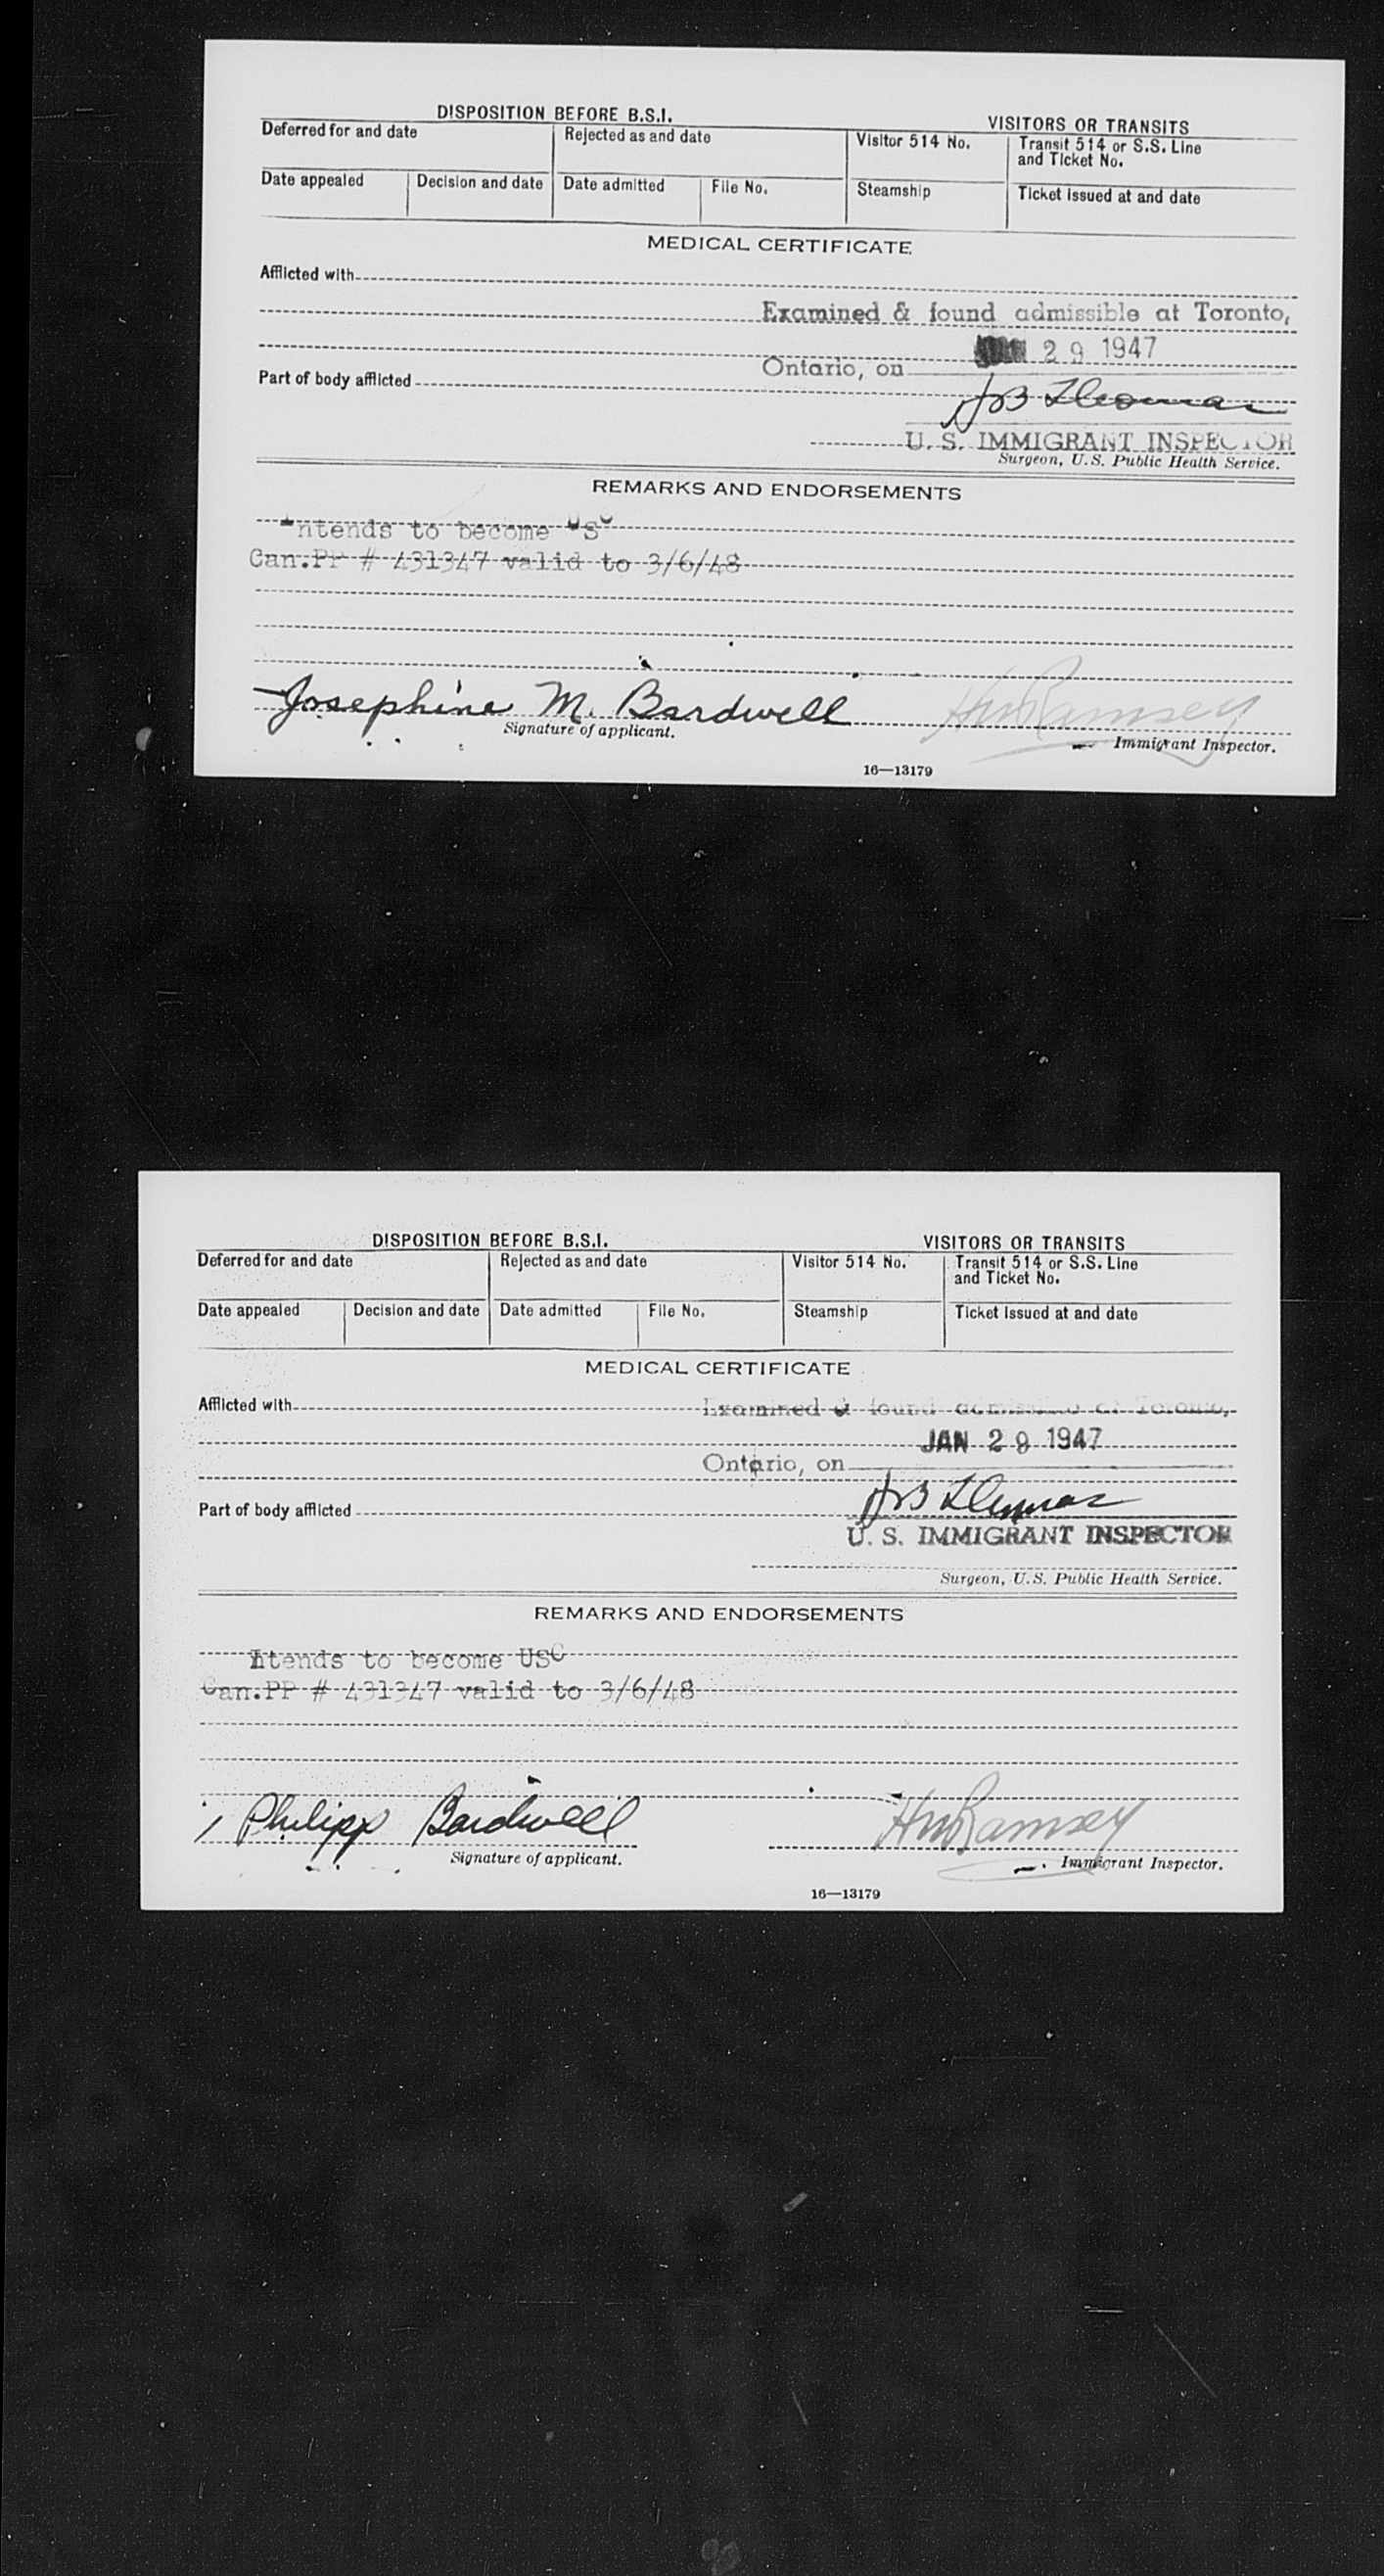 DISPOSITION BEFORE B.S.I.
VISITORS OR TRANSITS
Deferred for and date
Rejected as and date
Visitor 514 No.
Transit 514 or S.S. Line
and Ticket No.
Date appealed
Decision and date
Date admitted
File No.
Steamship
Ticket issued at and date
MEDICAL CERTIFICATE
Afflicted with
Examined & found admissible at Toronto,
29 1947
Ontario, on
Part of body afflicted
U. S. IMMIGRANT INSPECTOR
Surgeon, U.S. Public Health Service.
REMARKS AND ENDORSEMENTS
Intends to become
Can.PP # 431347 valid to 3/6/48
Josephine M. Bardwell
HM Ramsey
Signature of applicant.
Immigrant Inspector.
16—13179
DISPOSITION BEFORE B.S.I.
VISITORS OR TRANSITS
Deferred for and date
Rejected as and date
Visitor 514 No.
Transit 514 or S.S. Line
and Ticket No.
Date appealed
Decision and date
Date admitted
File No.
Steamship
Ticket issued at and date
MEDICAL CERTIFICATE
Afflicted with
Examined & found admissible at Toronto,
JAN 29 1947
Ontario, on
Part of body afflicted
U. S. IMMIGRANT INSPECTOR
Surgeon, U.S. Public Health Service.
REMARKS AND ENDORSEMENTS
Intends to become USC
Can.PP # 431347 valid to 3/6/48
Philipp Bardwell
HM Ramsey
Signature of applicant.
Immigrant Inspector.
16—13179